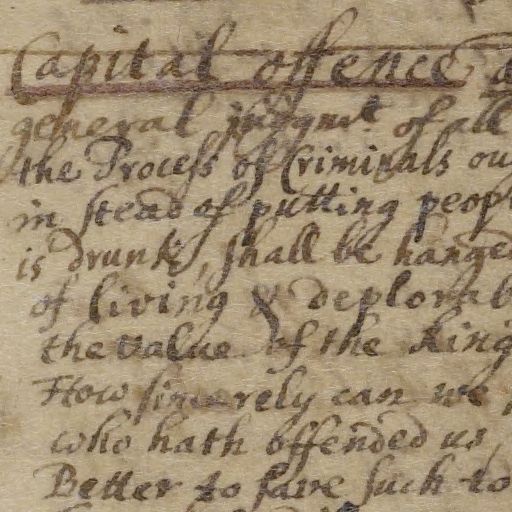 Capital offence
general judgmt. of all
the Process of Criminals ou
in stead of putting peop
is drunk, shall be hanged
of living & deplorab
the value of the King
How sincerely can we
who hath offended us,
Better to save such to